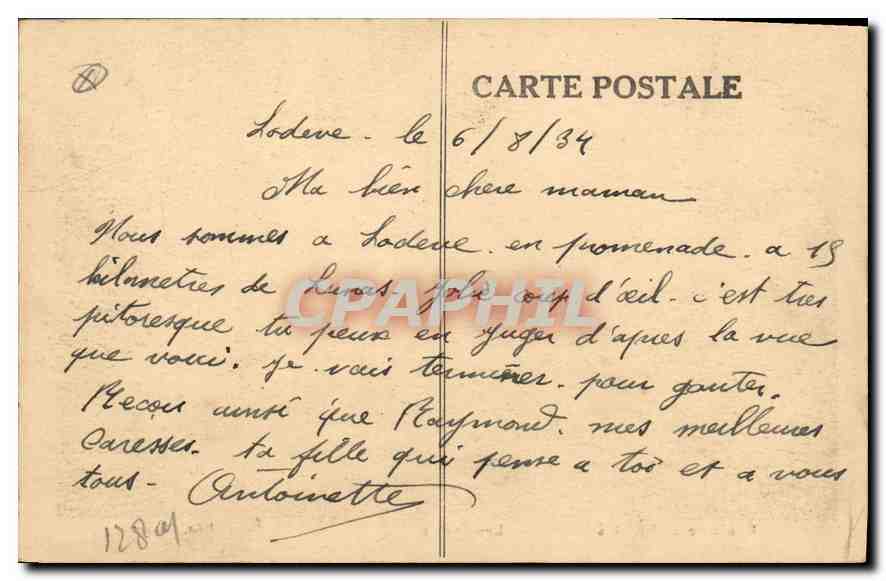 CARTE POSTALE
Lodeve - le 6/8/34
Ma bien chere maman
Nous sommes a Lodeve en promenade - a 15
kilometres de Lunas - Joli coup d'œil - c'est tres
pitoresque tu peux en juger d'apres la vue
que voici. Je vais terminer. pour gouter.
Recois ainsi que Raymond. mes meilleures
Caresses - ta fille qui pense a toi et a vous
tous - Antoinette
CPAPHIL
128